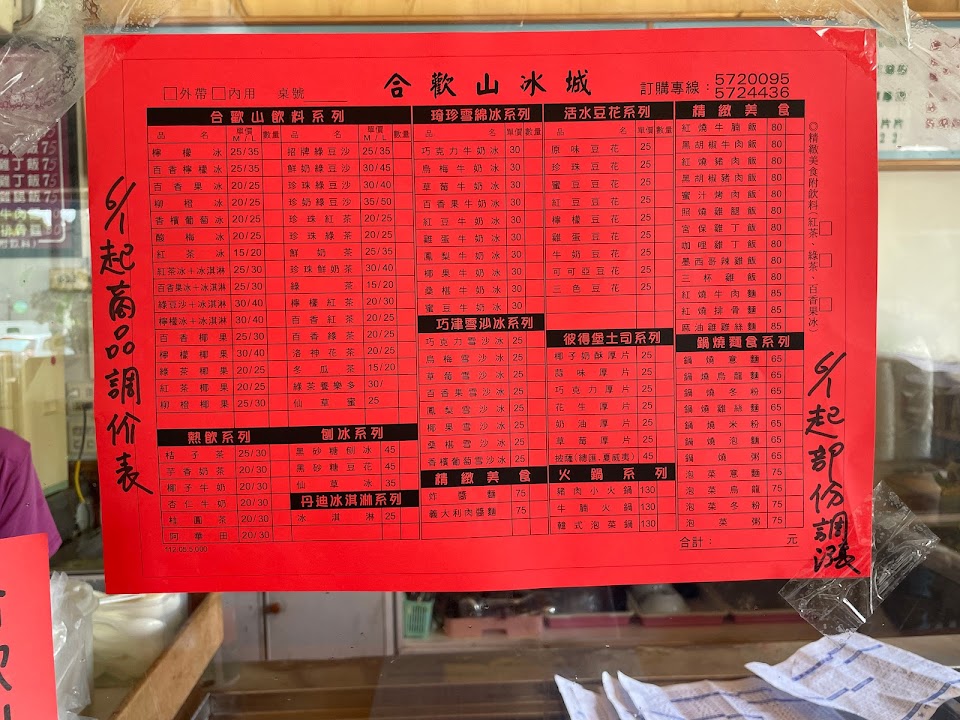 合歡山冰城
□外帶 □內用 桌號
訂購專線：5720095
5724436
6/1起商品調价表
合歡山飲料系列
品名 單價M/L 數量 品名 單價M/L 數量
檸檬冰 25/35 招牌綠豆沙 25/35
百香檸檬冰 25/35 鮮奶綠豆沙 30/45
百香果冰 20/25 珍珠綠豆沙 30/45
柳橙冰 20/25 珍奶綠豆沙 35/50
香檳葡萄冰 20/25 珍珠紅茶 20/25
酸梅冰 20/25 珍珠綠茶 20/25
紅茶冰 15/20 鮮奶茶 25/35
紅茶冰+冰淇淋 25/35 珍珠鮮奶茶 30/40
百香果冰+冰淇淋 25/35 綠茶 15/20
綠豆沙+冰淇淋 30/40 檸檬紅茶 20/30
檸檬冰+冰淇淋 30/40 百香紅茶 20/25
百香椰果 25/30 百香綠茶 20/25
檸檬椰果 30/40 洛神花茶 20/25
綠茶椰果 20/25 冬瓜茶 15/20
紅茶椰果 20/25 綠茶養樂多 30/
柳橙椰果 25/30 仙草蜜 25
熱飲系列
桔子茶 25/30
芋香奶茶 20/30
椰子牛奶 20/30
杏仁牛奶 20/30
桂圓茶 20/30
阿華田 20/30
刨冰系列
黑砂糖刨冰 45
黑砂糖豆花 45
仙草冰 35
丹迪冰淇淋系列
冰淇淋 25
琦珍雪綿冰系列
品名 單價 數量
巧克力牛奶冰 30
烏梅牛奶冰 30
草莓牛奶冰 30
百香果牛奶冰 30
紅豆牛奶冰 30
雞蛋牛奶冰 30
鳳梨牛奶冰 30
椰果牛奶冰 30
桑椹牛奶冰 30
蜜豆牛奶冰 30
巧津雪沙冰系列
巧克力雪沙冰 25
烏梅雪沙冰 25
草莓雪沙冰 25
百香果雪沙冰 25
鳳梨雪沙冰 25
椰果雪沙冰 25
桑椹雪沙冰 25
香檳葡萄雪沙冰 25
精緻美食
炸醬麵 75
義大利肉醬麵 75
活水豆花系列
品名 單價 數量
原味豆花 25
珍珠豆花 25
蜜豆豆花 25
紅豆豆花 25
檸檬豆花 25
雞蛋豆花 25
牛奶豆花 25
可可亞豆花 25
三色豆花 25
彼得堡土司系列
椰子奶酥厚片 25
蒜味厚片 25
巧克力厚片 25
花生厚片 25
奶油厚片 25
草莓厚片 25
披薩(總匯.夏威夷) 45
火鍋系列
豬肉小火鍋 130
牛腩火鍋 130
韓式泡菜鍋 130
精緻美食
紅燒牛腩飯 80
黑胡椒牛肉飯 80
紅燒豬肉飯 80
黑胡椒豬肉飯 80
蜜汁烤肉飯 80
照燒雞腿飯 80
宮保雞丁飯 80
咖哩雞丁飯 80
墨西哥辣雞飯 80
三杯雞飯 80
紅燒牛肉麵 85
紅燒排骨麵 85
麻油雞雞絲麵 85
鍋燒麵食系列
鍋燒意麵 65
鍋燒烏龍麵 65
鍋燒冬粉 65
鍋燒雞絲麵 65
鍋燒米粉 65
鍋燒泡麵 65
鍋燒粥 65
泡菜意麵 75
泡菜烏龍 75
泡菜冬粉 75
泡菜粥 75
◎精緻美食附飲料(紅茶、綠茶、百香果冰)
6/1起部份調漲
合計： 元